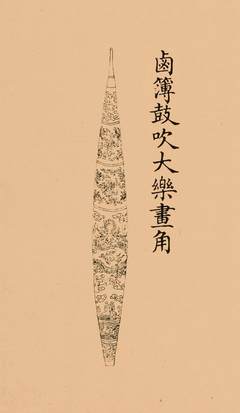 鹵簿鼓吹大樂畫角